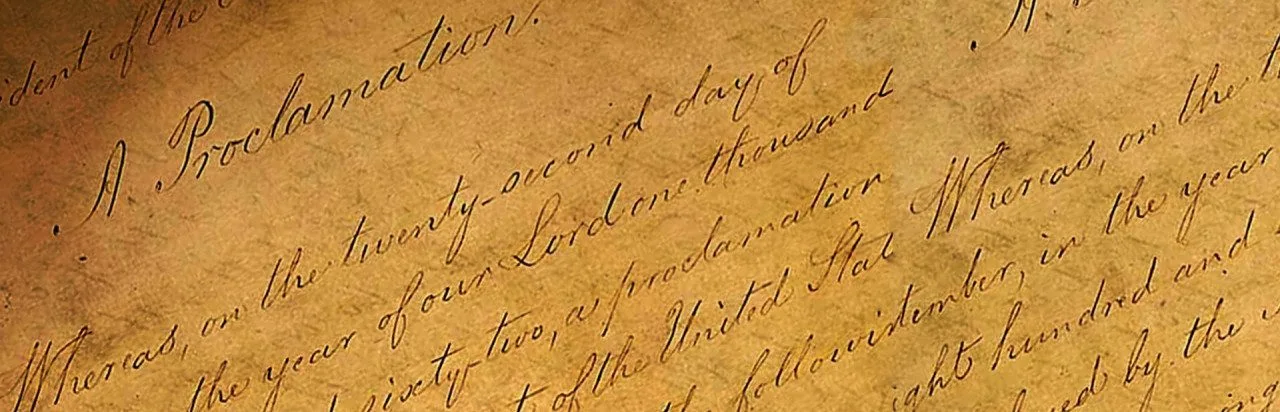 ident of the
A Proclamation.
Whereas, on the twenty-second day of
the year of our Lord one thousand
sixty-two, a proclamation
of the United Stat
the followi
A
Whereas, on the
tember, in the year
ight hundred and
ed by the